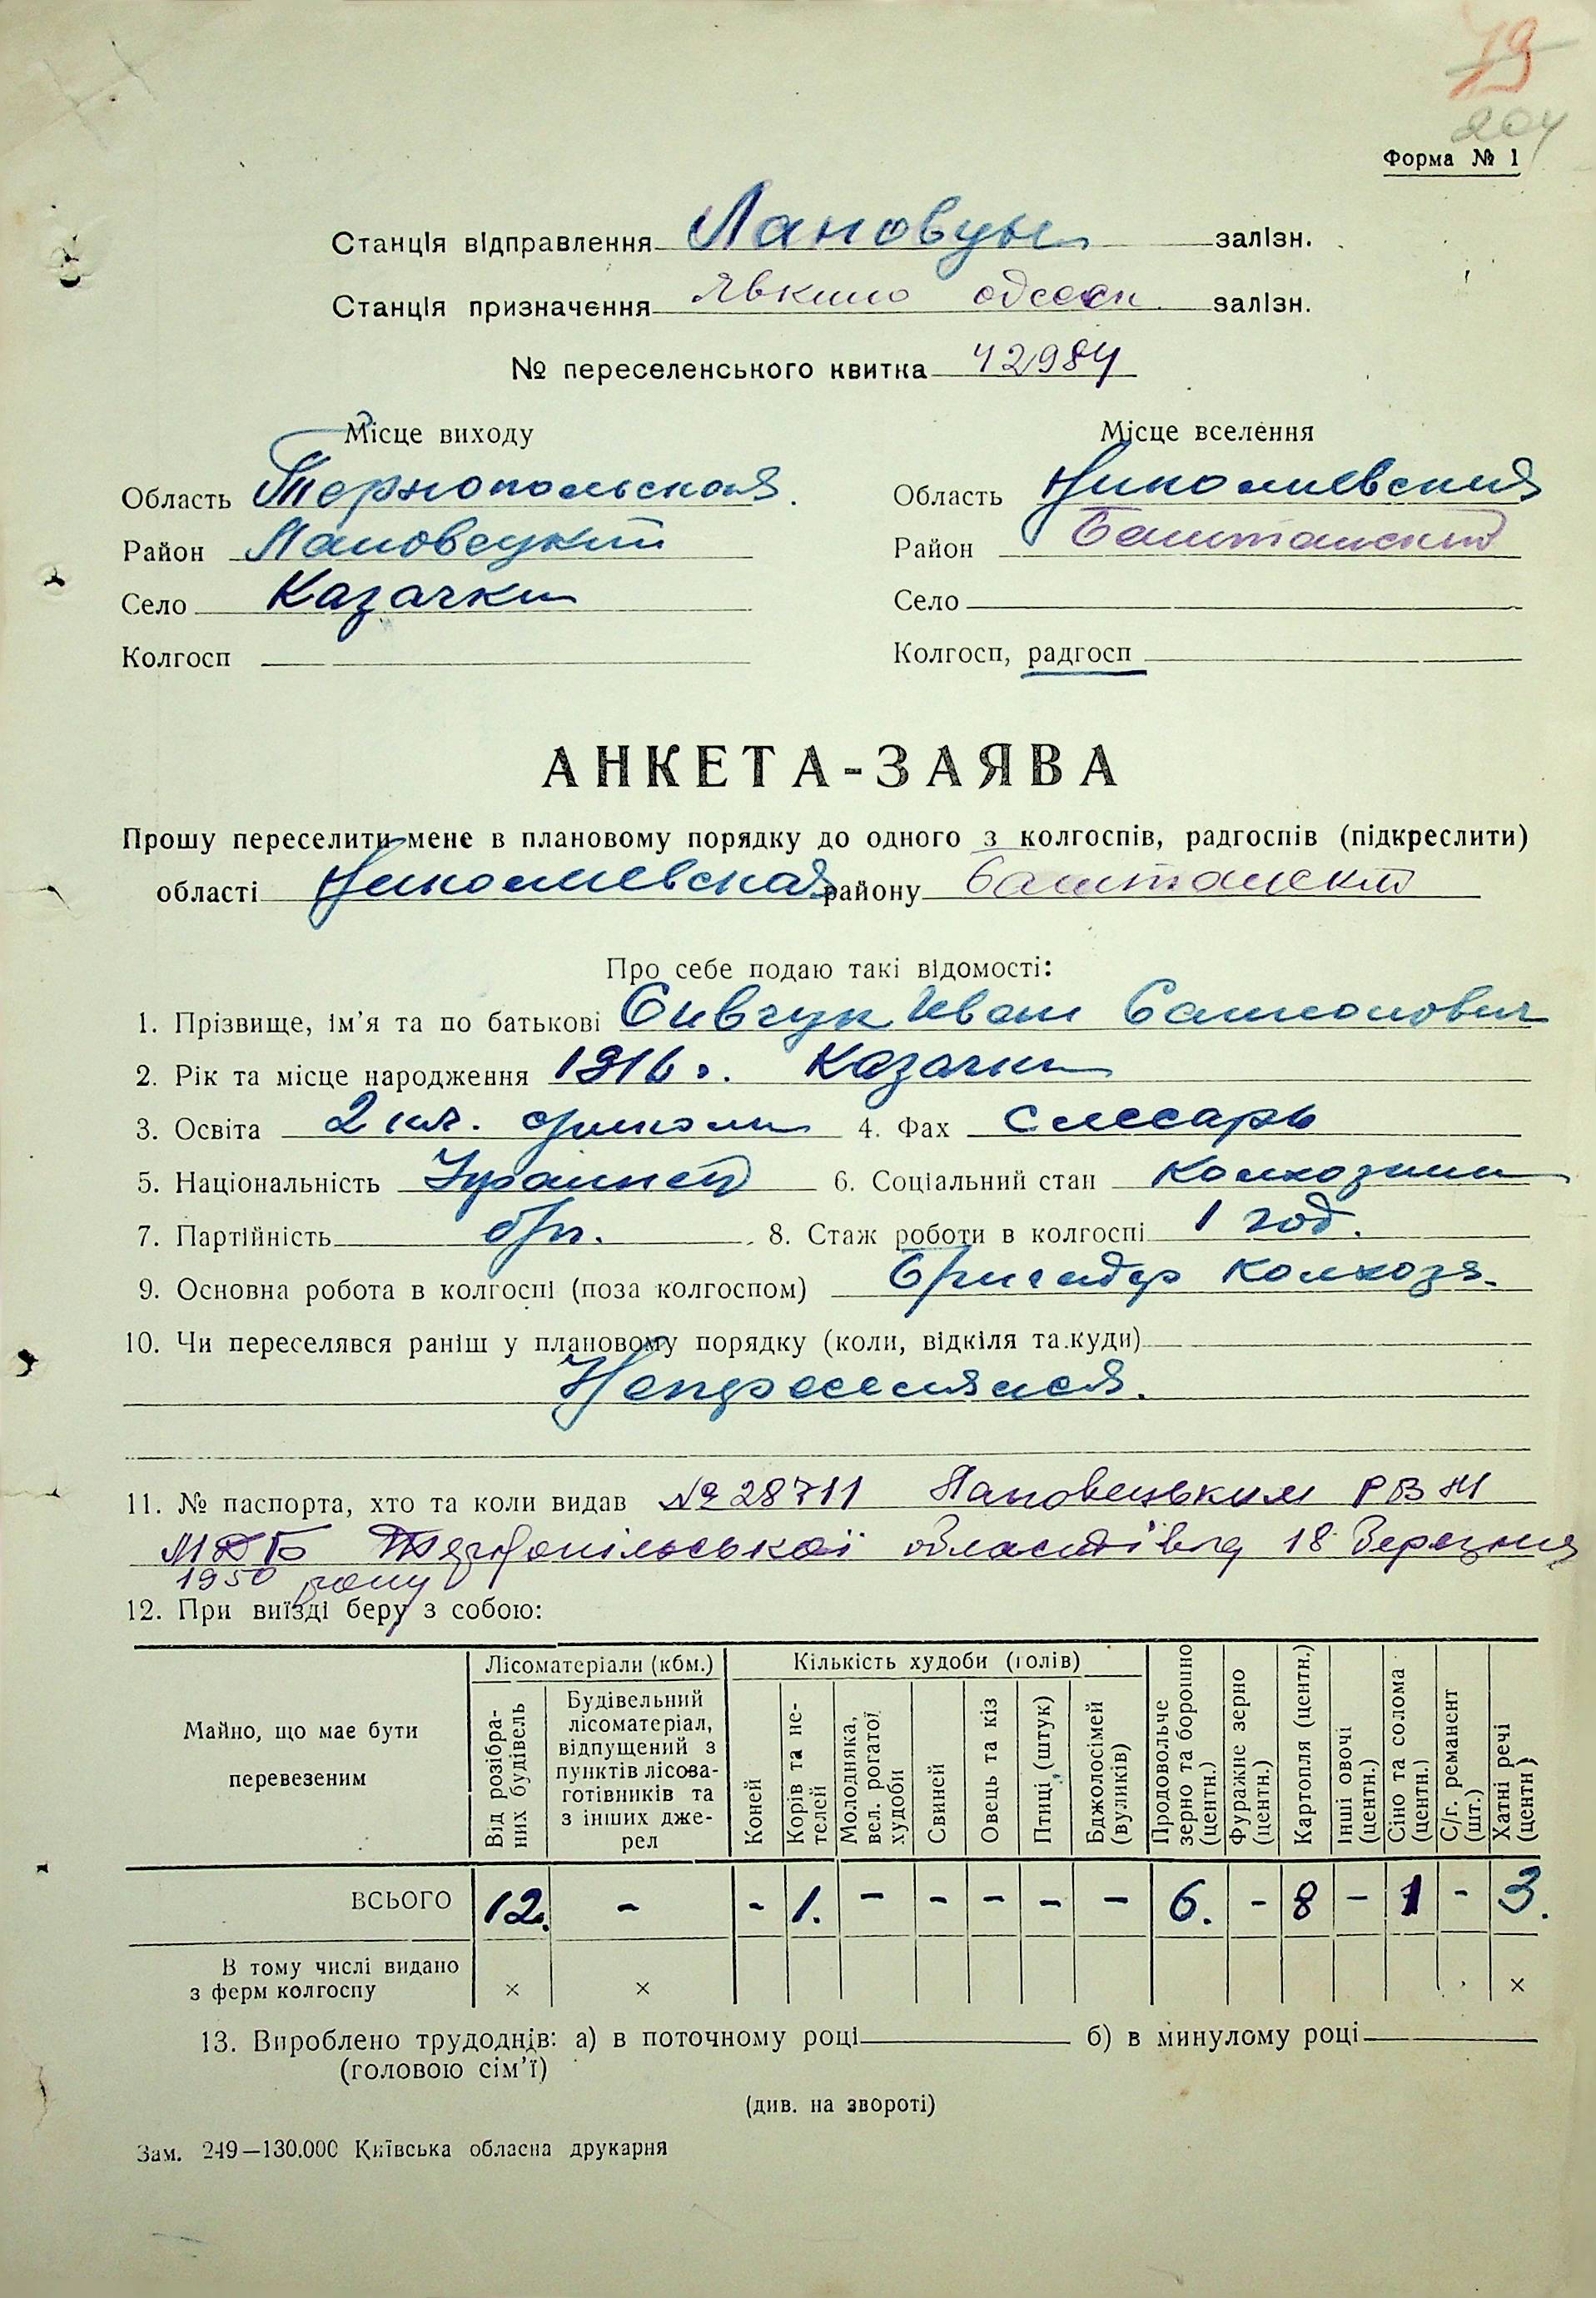 79
204
Форма № 1
Станція відправлення Лановцы залізн.
Станція призначення Явкино одесск. залізн.
№ переселенського квитка 42984
Місце виходу Місце вселення
Область Тернопольская. Область Николаевская
Район Лановецкий Район Баштанский
Село Казачки Село
Колгосп Колгосп, радгосп
АНКЕТА-ЗАЯВА
Прошу переселити мене в плановому порядку до одного з колгоспів, радгоспів (підкреслити)
області Николаевская району Баштанский
Про себе подаю такі відомості:
1. Прізвище, ім'я та по батькові Сивчук Иван
2. Рік та місце народження 1916 г. Казачки
3. Освіта 2 кл. 4. Фах Слесарь
5. Національність Украинец 6. Соціальний стан Колхозник
7. Партійність б/п. 8. Стаж роботи в колгоспі 1 год.
9. Основна робота в колгоспі (поза колгоспом) Бригадир колхоза.
10. Чи переселявся раніш у плановому порядку (коли, відкіля та куди)
Непереселялся.
11. № паспорта, хто та коли видав № 28711 Лановецьким РВ М
МДБ Тернопільської області від 18 Березня
1950 року
12. При виїзді беру з собою:
Майно, що має бути перевезеним
Лісоматеріали (кбм.) Кількість худоби (голів)
Від розібраних будівель
Будівельний лісоматеріал, відпущений з пунктів лісозаготівників та з інших джерел
Коней
Корів та нетелей
Молодняка, вел. рогатої худоби
Свиней
Овець та кіз
Птиці (штук)
Бджолосімей (вуликів)
Продовольче зерно та борошно (центн.)
Фуражне зерно (центн.)
Картопля (центн.)
Інші овочі (центн.)
Сіно та солома (центн.)
С/г. реманент (шт.)
Хатні речі (центн)
ВСЬОГО 12. - - 1. - - - - - 6. - 8 - 1 - 3.
В тому числі видано
з ферм колгоспу × × ×
13. Вироблено трудоднів: а) в поточному році б) в минулому році
(головою сім'ї)
(див. на звороті)
Зам. 249—130.000 Київська обласна друкарня